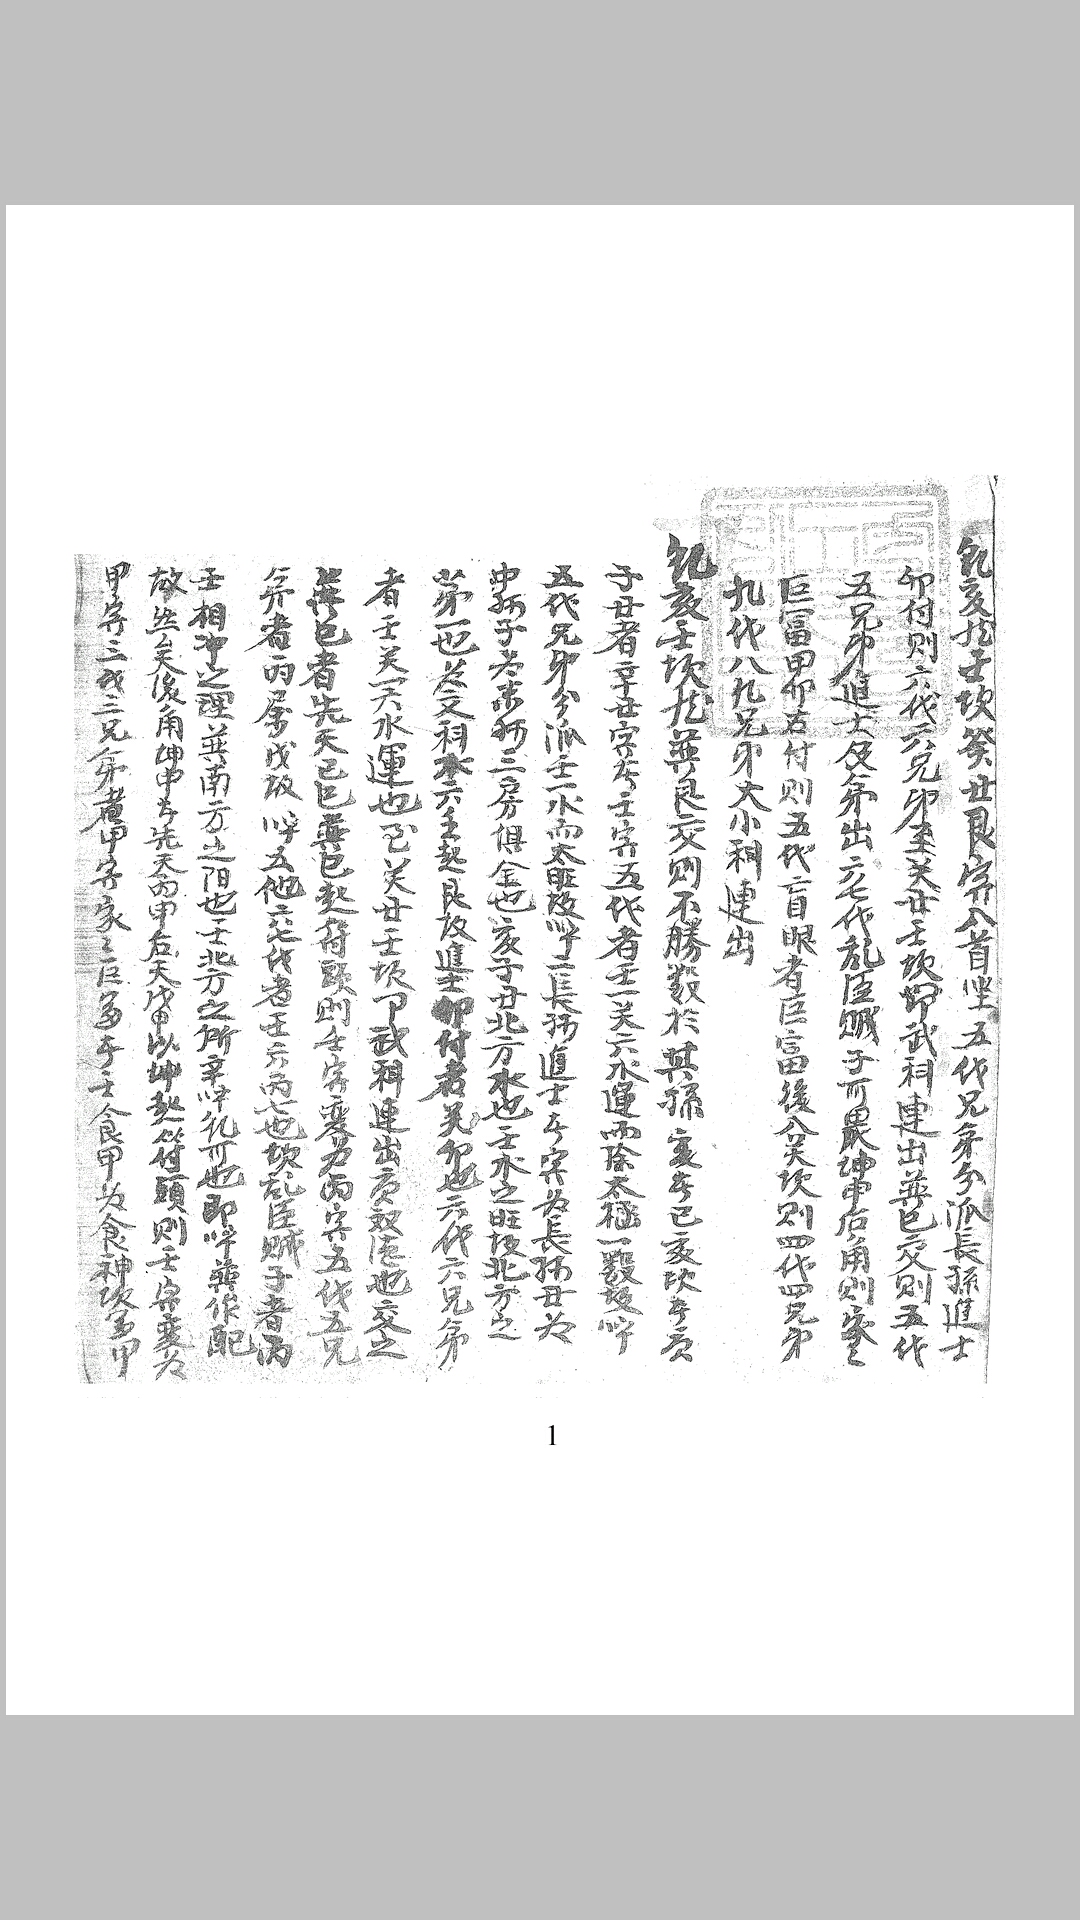 乾亥龍壬坎癸丑艮字入首坐五代兄弟分派長孫進士
卯付則六代六兄弟至癸丑壬坎卯武科連出巽巳交則五代
五兄弟進士及第出六七代亂臣賊子可畏坤申后角則家々
巨富甲卯右付則五代盲眼者臣富後入癸坎則四代四兄弟
九代八九兄弟大小科連出
乾亥壬坎龍巽艮交則不勝数於其孫亥本己亥坎本貢
子丑者辛丑字本壬字五代者壬一癸六水運而除太極一数故呼
五代兄弟分派士一水而太旺故呼二長孫進士本字為長孫丑為
中孫子為末孫三房俱金也亥子丑北方水也壬水之旺故北方之
第一也為文科水六壬起艮故進士卯付者癸卯也六代六兄弟
者壬癸一天水運也至癸丑壬坎卯武科連出貢奴法也交之
巽巳者先天己巳巽巳起符頭則壬字變為丙字五代五兄
弟者丙屬戊故呼五他六七代者壬六丙七也坎亂臣賊子者丙
壬相冲之理巽南方之陽也壬北方之所辛冲礼可也即呼巽作配
故然矣後角坤申本先天丙申后天戊申以坤起符頭則壬字變為
甲字三代三兄弟者甲字家々巨富本士食甲為食神坎富甲